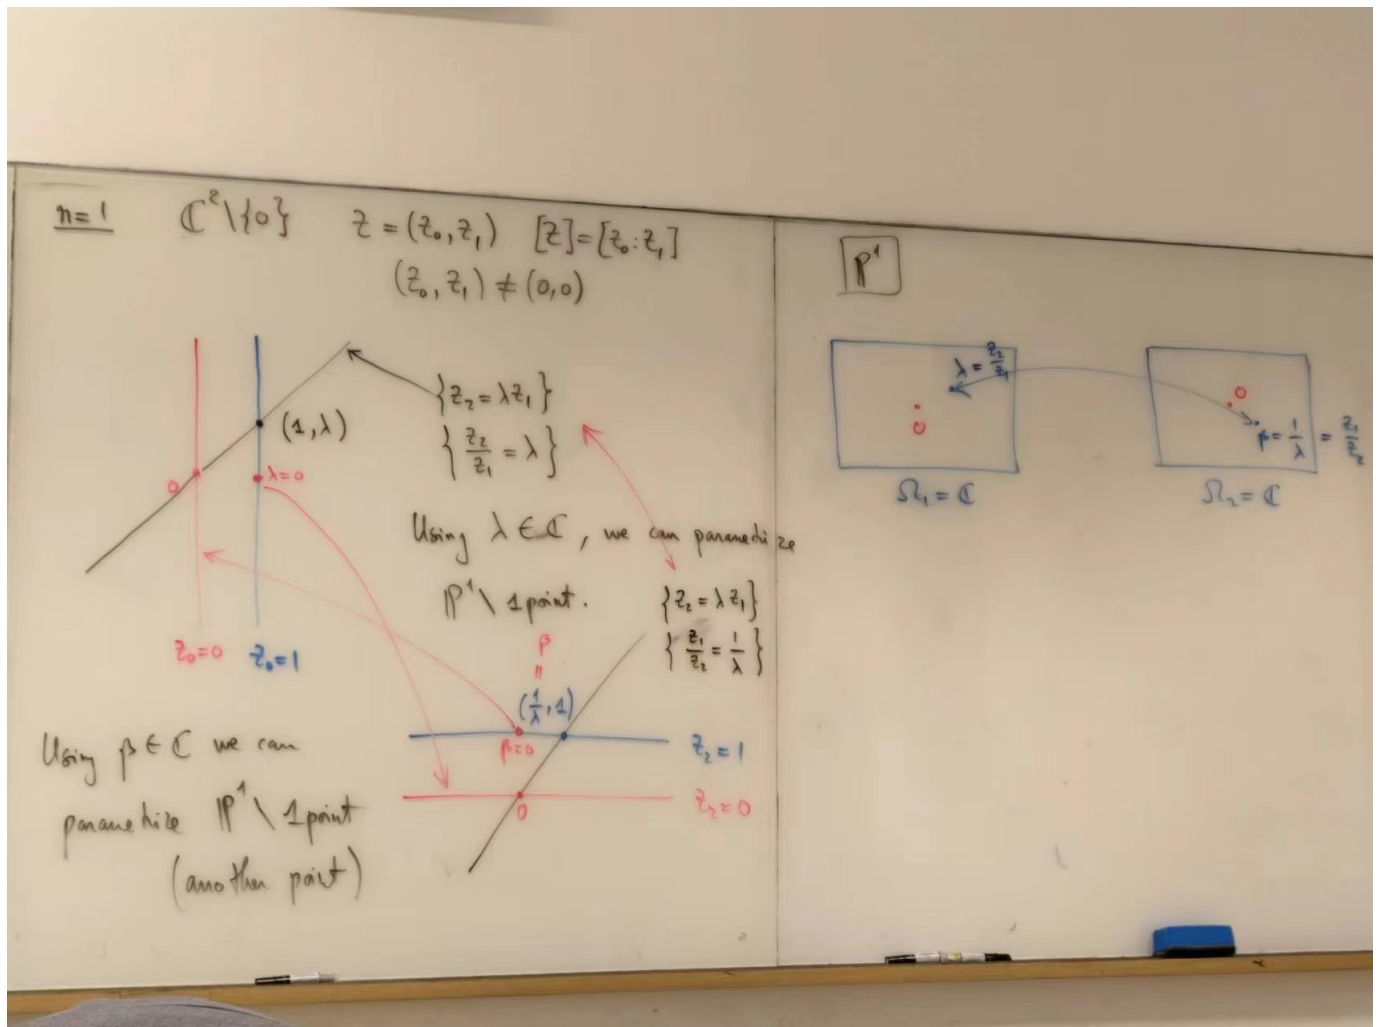 n=1 ℂ²\{0} Z=(z₀,z₁) [Z]=[z₀:z₁]
(z₀,z₁)≠(0,0)
{z₂=λz₁}
{z₂/z₁=λ}
(1,λ)
0
λ=0
Using λ∈ℂ, we can parametrize
ℙ¹\1point.
z₀=0
z₀=1
{z₂=λz₁}
{z₁/z₂=1/λ}
β
=
(1/λ,1)
β=0
z₂=1
z₂=0
0
Using β∈ℂ we can
parametrize ℙ¹\1point
(another point)
ℙ¹
λ=z₂/z₁
0
Ω₁=ℂ
0
β=1/λ=z₁/z₂
Ω₂=ℂ